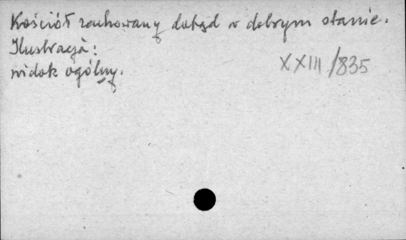 Kościół zachowany dotąd w dobrym stanie.
Ilustracja:
widok ogólny.
XXIII/835